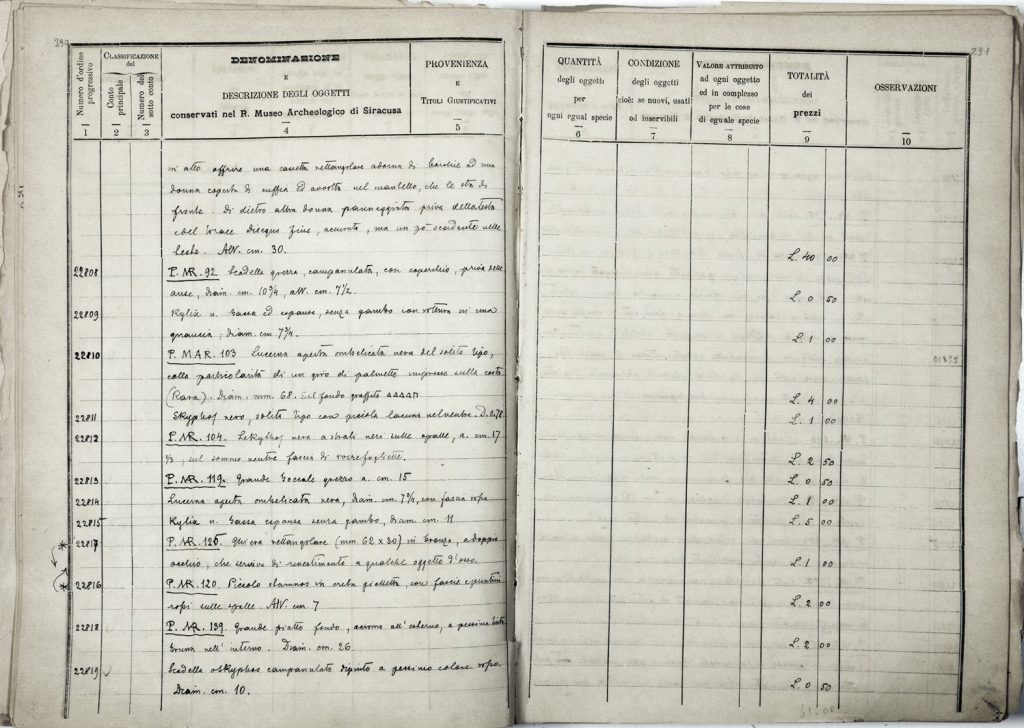 290
Numero d'ordine progressivo
CLASSIFICAZIONE del
Conto principale
Numero del sotto conto
DENOMINAZIONE
E
DESCRIZIONE DEGLI OGGETTI
conservati nel R. Museo Archeologico di Siracusa
PROVENIENZA
E
TITOLI GIUSTIFICATIVI
1 2 3 4 5
in atto offrire una cassetta rettangolare adorna di ad una
donna coperta di cuffia ed avvolta nel mantello, che le sta di
fronte. Di dietro altra donna panneggiata priva della testa
e del torace. Disegno fine, accurato, ma un pò scadente nelle
teste. Alt. cm. 30.
22808 P. NR. 92 Scodella grezza, campanulata, con coperchio, priva delle
anse, diam. cm. 10¾, alt. cm. 7½
22809 Kylix n. bassa ed espansa, senza gambo con rottura in una
diam. cm 7¾.
22810 P. MAR. 103 Lucerna aperta ombelicata nera del solito tipo,
colla particolarità di un giro di palmette impresse sulla costa
(Rara). Diam. mm. 68. Sul fondo graffito
22811 Skyphos nero, solito tipo con piccola lacuna nel ventre.
22812 P. NR. 104. Lekythos nera a strali neri sulle spalle, a. cm. 17
⅓, sul sommo ventre fascia di
22813 P. NR. 119. Grande boccale grezzo a. cm. 15
22814 Lucerna aperta ombelicata nera, diam. cm. 7¾, con fascia rossa
22815 Kylix n. bassa espansa senza gambo, diam. cm. 11
22817 P. NR. 126. rettangolare (mm 62 x 30) in bronzo, a doppio
occhio, che serviva di rivestimento a qualche oggetto d'osso.
22816 P. NR. 120 Piccolo stamnos in creta gialletta, con fascie e puntini
rossi sulle spalle. Alt. cm. 7
22818 P. NR. 139. Grande piatto fondo, all'esterno, a pessima tinta
bruna nell'interno. Diam. cm. 26
22819 Scodella o skyphos campanulato dipinto a pessimo colore rosso.
Diam. cm. 10.
291
QUANTITÀ
degli oggetti
per
ogni egual specie
CONDIZIONE
degli oggetti
cioè: se nuovi, usati
od inservibili
VALORE ATTRIBUITO
ad ogni oggetto
ed in complesso
per le cose
di eguale specie
TOTALITÀ
dei
prezzi
OSSERVAZIONI
6 7 8 9 10
L. 40 00
L. 0 50
L. 1 00
L. 4 00
L. 1 00
L. 2 50
L. 0 50
L. 1 00
L. 5 00
L. 1 00
L. 2 00
L. 2 00
L. 0 50